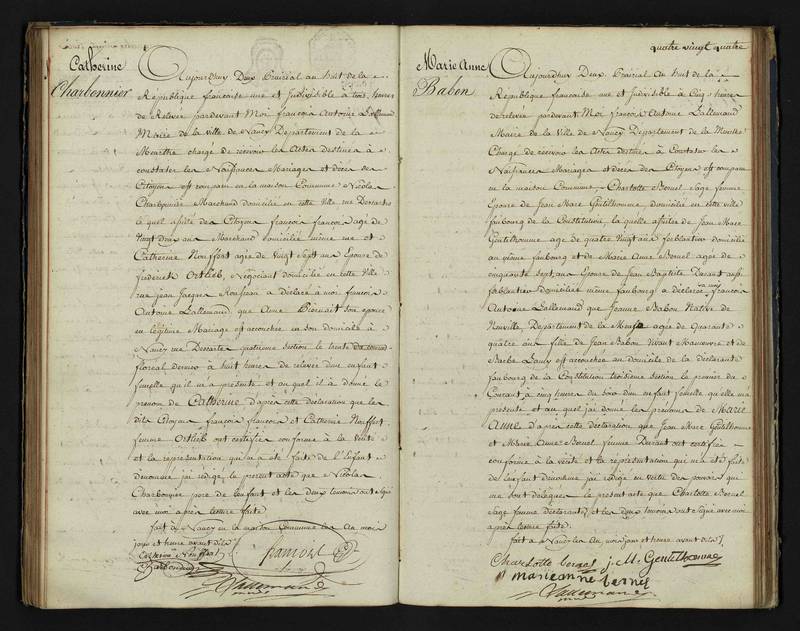 Catherine
Charbonnier
Aujourdhuy Deux Prairial an huit de la
Republique francaise une et Indivisible à trois heures
de Relevée pardevant Moi françois Antoine Lallemand
Maire de la ville de Nancy Département de la
Meurthe chargé de recevoir les Actes destinés à
constater les Naissances Mariages et décès des
Citoyens est comparu en la maison Commune Nicolas
Charbonnier Marchand domicilié en cette Ville rue Descartes
le quel assisté des Citoyens françois françois agé de
Vingt deux ans Marchand domicilié même rue et
Catherine Nouffert agée de Vingt Sept ans Epouse de
frederick Ortlieb, Négociant domicilié en cette Ville
rue jean Jacques Rousseau a déclaré à moi françois
Antoine Lallemand, que Anne son épouse
en légitime Mariage est accouchée en son domicile à
Nancy rue Descartes quatrieme section le trente
floréal dernier à huit heures de relevée d'un enfant
femelle qu'il m'a présenté et au quel il a donné le
prenom de Catherine d'après cette declaration que les
dits Citoyens françois françois et Catherine Nouffert
femme Ortlieb ont certifiée conforme à la Vérité
et la représentation qui m'a été faite de l'Enfant
denommé, j'ai rédigé le présent acte que Nicolas
Charbonnier pere de l'enfant et les deux temoins ont signé
avec moi après lecture faite
fait à Nancy en la maison Commune les An mois
jour et heure avant dits
Catherine Nouffert
francois
Charbonnier
Lallemand
quatre vingt quatre
Marie Anne
Babon
Aujourdhuy Deux Prairial an huit de la
Republique francaise une et Indivisible à Cinq heures
de relevée pardevant Moi françois Antoine Lallemand
Maire de la Ville de Nancy Département de la Meurthe
Chargé de recevoir les Actes destinés à Constater les
Naissances Mariages et décès des Citoyens est comparu
en la maison Commune, Charlotte sage femme
Epouse de Jean Marc Gentilhomme, domiciliée en cette ville
faubourg de la Constitution, la quelle assistée de Jean Marc
Gentilhomme agé de quatre Vingt ans ferblantier domicilié
au même faubourg et de Marie Anne agée de
cinquante sept ans Epouse de Jean Baptiste aussi
ferblantier domiciliés même faubourg a déclaré à moi françois
Antoine Lallemand que Jeanne Babon Native de
Neuville Département de la Meuse agée de Quarante
quatre ans fille de Jean Babon Vivant Manoeuvre et de
Barbe est accouchée au domicile de la déclarante
faubourg de la Constitution troisieme section le premier du
Courant à cinq heures du soir d'un enfant femelle qu'elle m'a
présenté et au quel j'ai donné les prenoms de Marie
Anne d'après cette declaration que Jean Marc Gentilhomme
et Marie Anne femme ont certifiée
conforme à la vérité et la représentation qui m'a été faite
de l'enfant denommé j'ai rédigé en vertu des pouvoirs qui
me sont délégués le présent acte que Charlotte
sage femme déclarante et les deux temoins ont signé avec moi
après lecture faite
fait à Nancy les An mois jour et heure avant dits
Charlotte j. M. Gentilhomme
marieanne
Lallemand